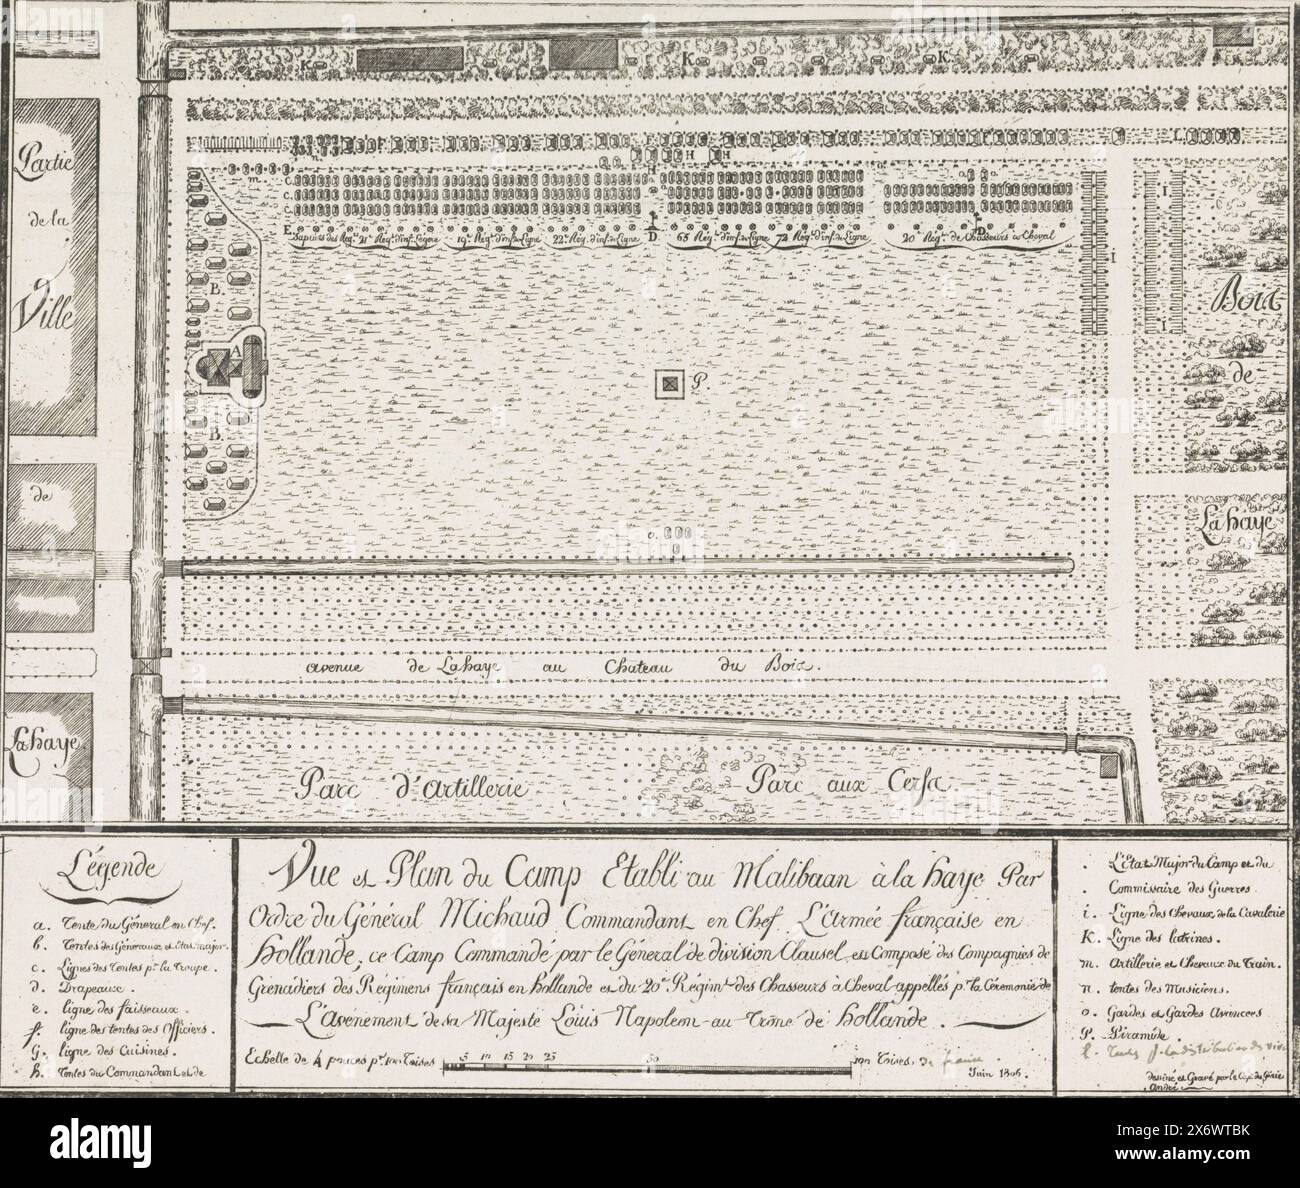 K. K K
F F L
H H
m n H
c.
c.
c.
E. D D
Sapeurs des Reg.ts 21.e Reg.t d'inf. Légere 19.e Reg.t d'inf. de Ligne 22.e Reg.t d'inf. de Ligne 65 Reg.t d'inf. de Ligne 72 Reg.t d'inf. de Ligne 20.e Reg.t de Chasseurs à Cheval
I
I
I
B.
A
B.
P.
o.
Partie
de la
Ville
de
La haye
Bois
de
La haye
avenue de La haye au Chateau du Bois.
Parc d'artillerie
Parc aux Cerfs
Légende
a. Tente du Général en Chef.
b. Tentes des Généraux et Etat major.
c. Lignes des Tentes p.r la Troupe.
d. Drapeaux.
e. ligne des faisseaux.
f. ligne des tentes des Officiers.
g. ligne des Cuisines.
h. Tentes du Commandant et de
Vue et Plan du Camp Etabli au Malibaan à la haye Par
Ordre du Général Michaud Commandant en Chef L'Armée française en
Hollande, ce Camp Commandé par le Général de division Clausel est Composé des Compagnies de
Grenadiers des Régimens français en hollande et du 20.e Regim.t des Chasseurs à Cheval appellés p.r la Cérémonie de
L'avenement de sa Majesté Louis Napoleon au Trône de Hollande.
Echelle de 4 pouces p.r 100 Toises 5 10 15 20 25 50 100 Toises. de france
Juin 1806.
. L'Etat Major du Camp et du
. Commissaire des Guerres.
i. Ligne des Chevaux de la Cavalerie
K. Ligne des latrines.
m. Artillerie et Chevaux du Train.
n. tentes des Musiciens.
o. Gardes et Gardes Avancées
P. Piramide
l. Tentes p. la distribution des vivres
dessiné et Gravé par le Cap. du Génie
André
alamy
Image ID: 2X6WTBK
www.alamy.com